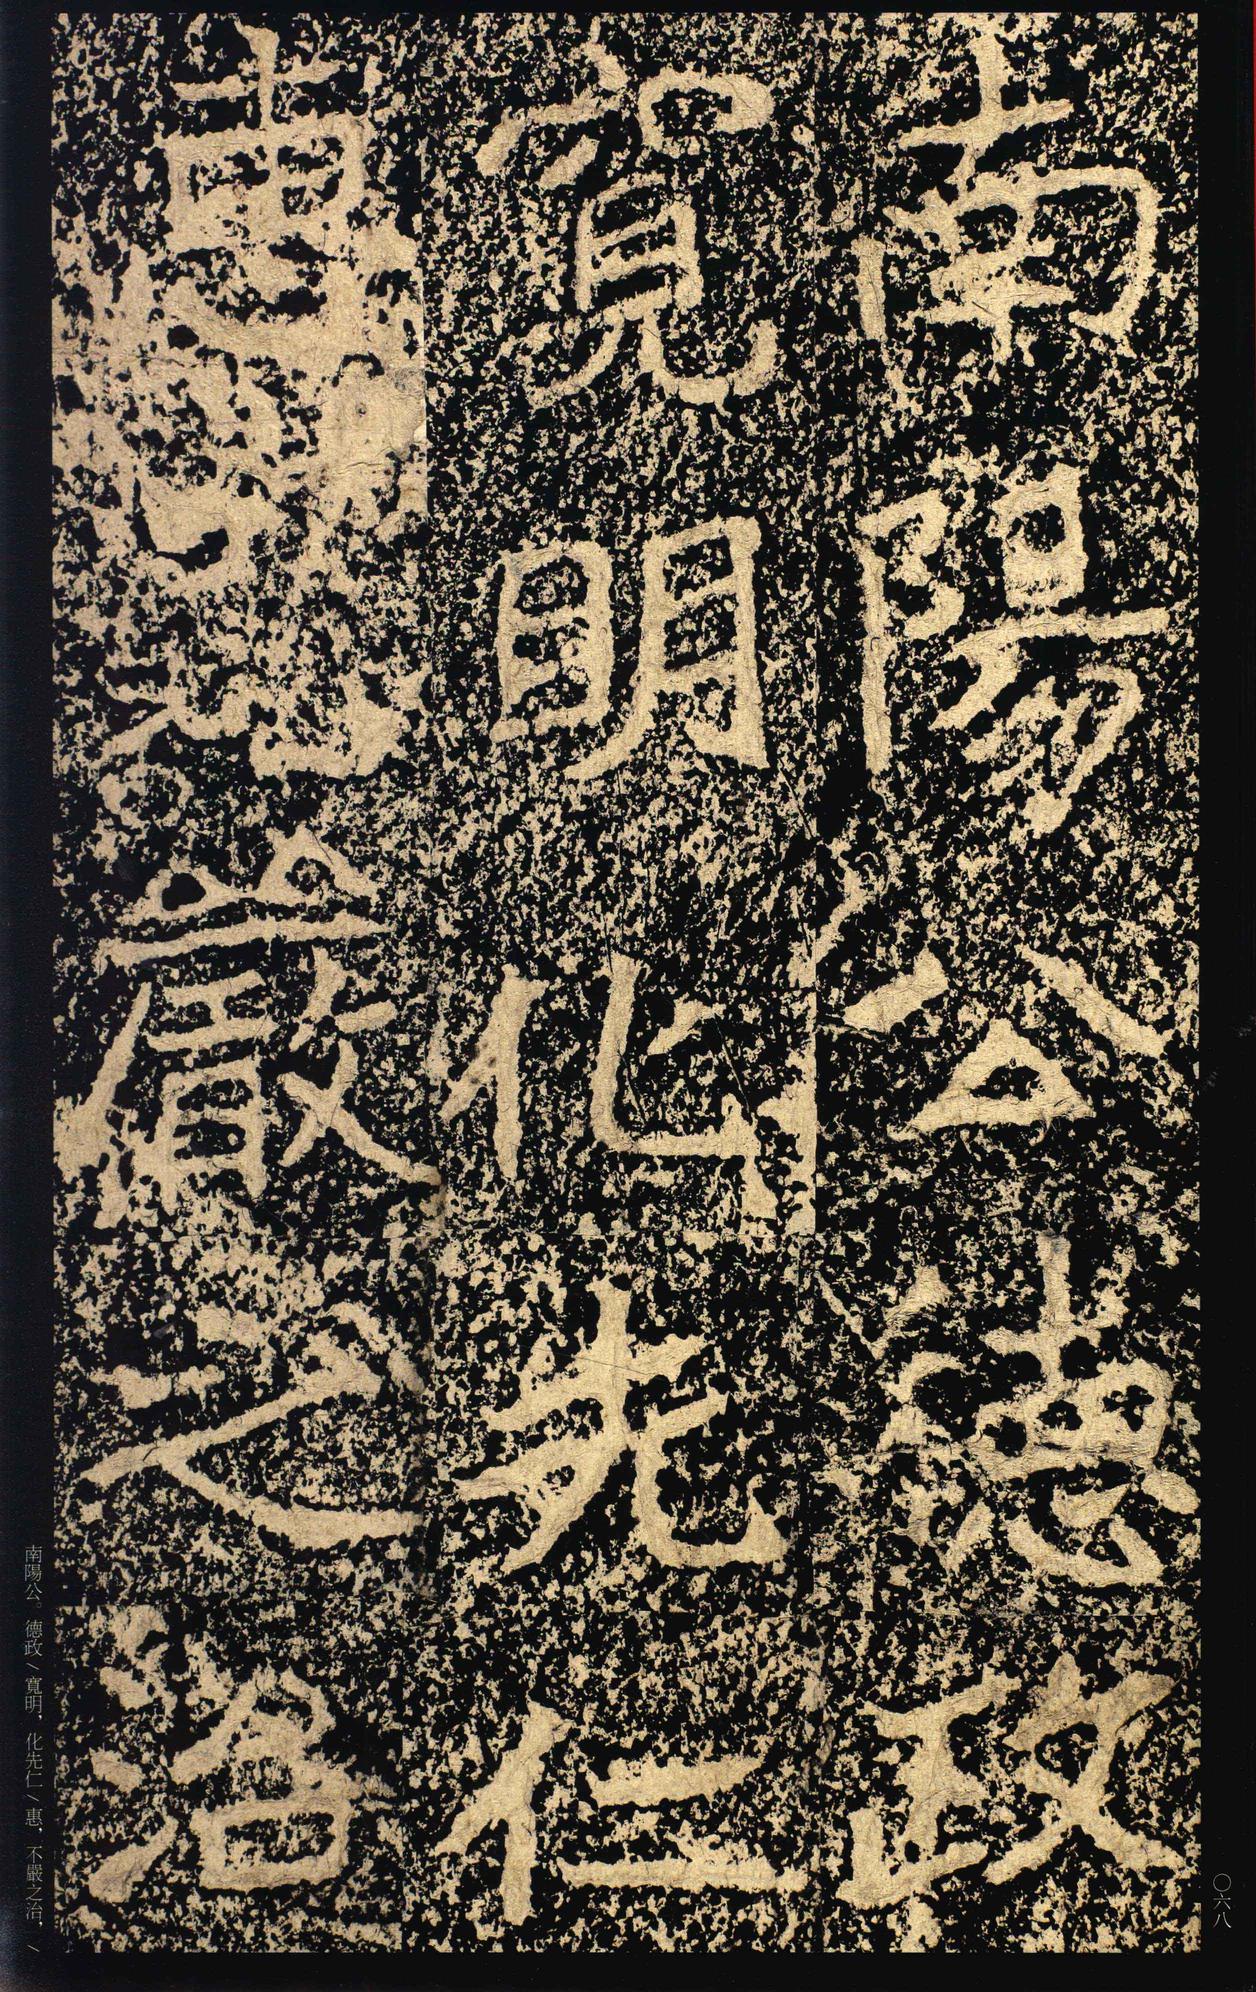 南陽公德政
寬明化先仁
惠不嚴之治
南陽公。德政/寬明，化先仁/惠，不嚴之治，/
〇六八